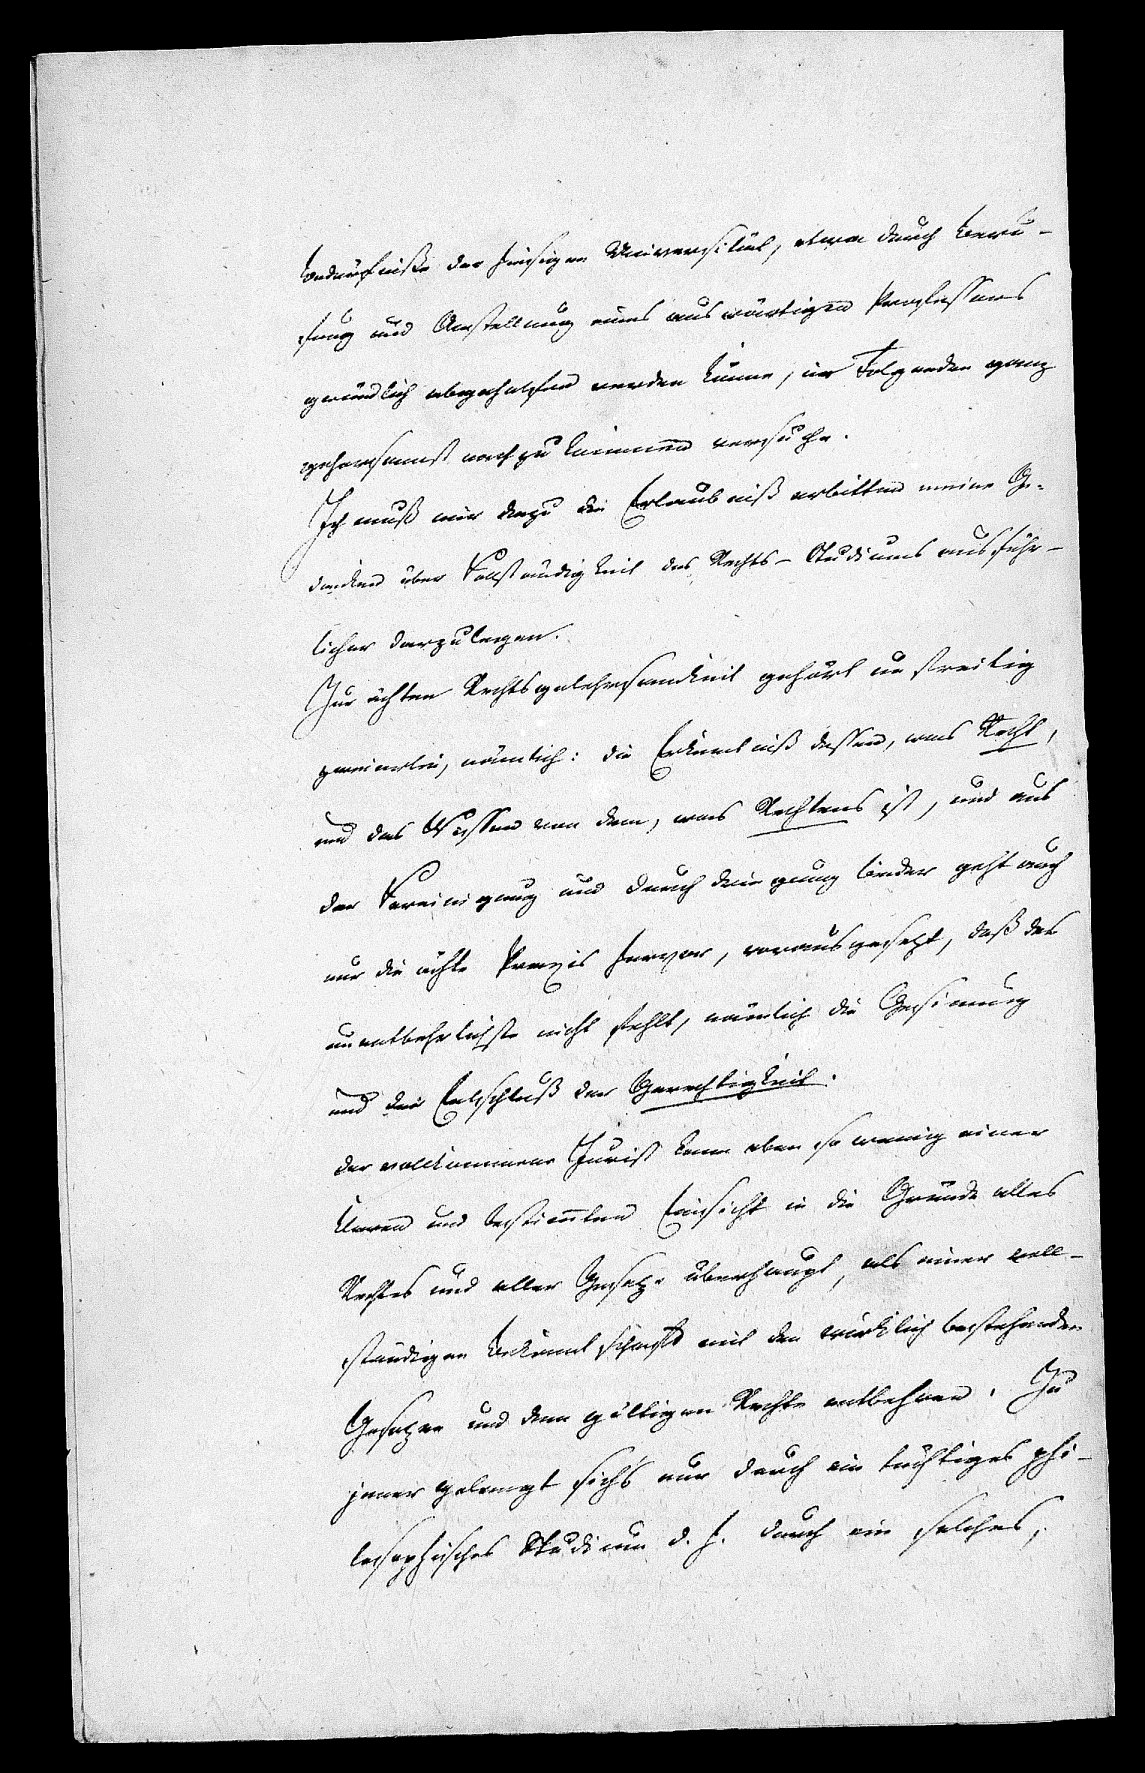 Bedürfniße der hiesigen Universität, etwa durch Beru-
fung und Anstellung eines auswärtigen Professors
gründlich abgeholfen werden könne, im Folgenden ganz
gehorsamst nachzukommen versuche.
Ich muß mir dazu die Erlaubniß erbitten meine Ge-
danken über Vollständigkeit des Rechts-Studiums ausführ-
licher darzulegen.
Zur ächten Rechtsgelehrsamkeit gehört unstreitig
zweierlei, nämlich: die Erkenntniß dessen, was Recht,
und das Wissen von dem, was Rechtens ist, und aus
der Vereinigung und Durchdringung beider geht auch
nur die ächte Praxis hervor, vorausgesetzt, daß das
unentbehrlichste nicht fehlt, nämlich die Gesinnung
und der Entschluß der Gerechtigkeit.
Der vollkommene Jurist kann eben so wenig einer
klaren und bestimmten Einsicht in die Gründe alles
Rechtes und aller Gesetze überhaupt, als einer voll-
ständigen Bekanntschaft mit den wirklich bestehenden
Gesetzen und dem gültigen Rechte entbehren. Zu
jener gelangt sich's nur durch ein tüchtiges phi-
losophisches Studium d. h. durch ein solches,